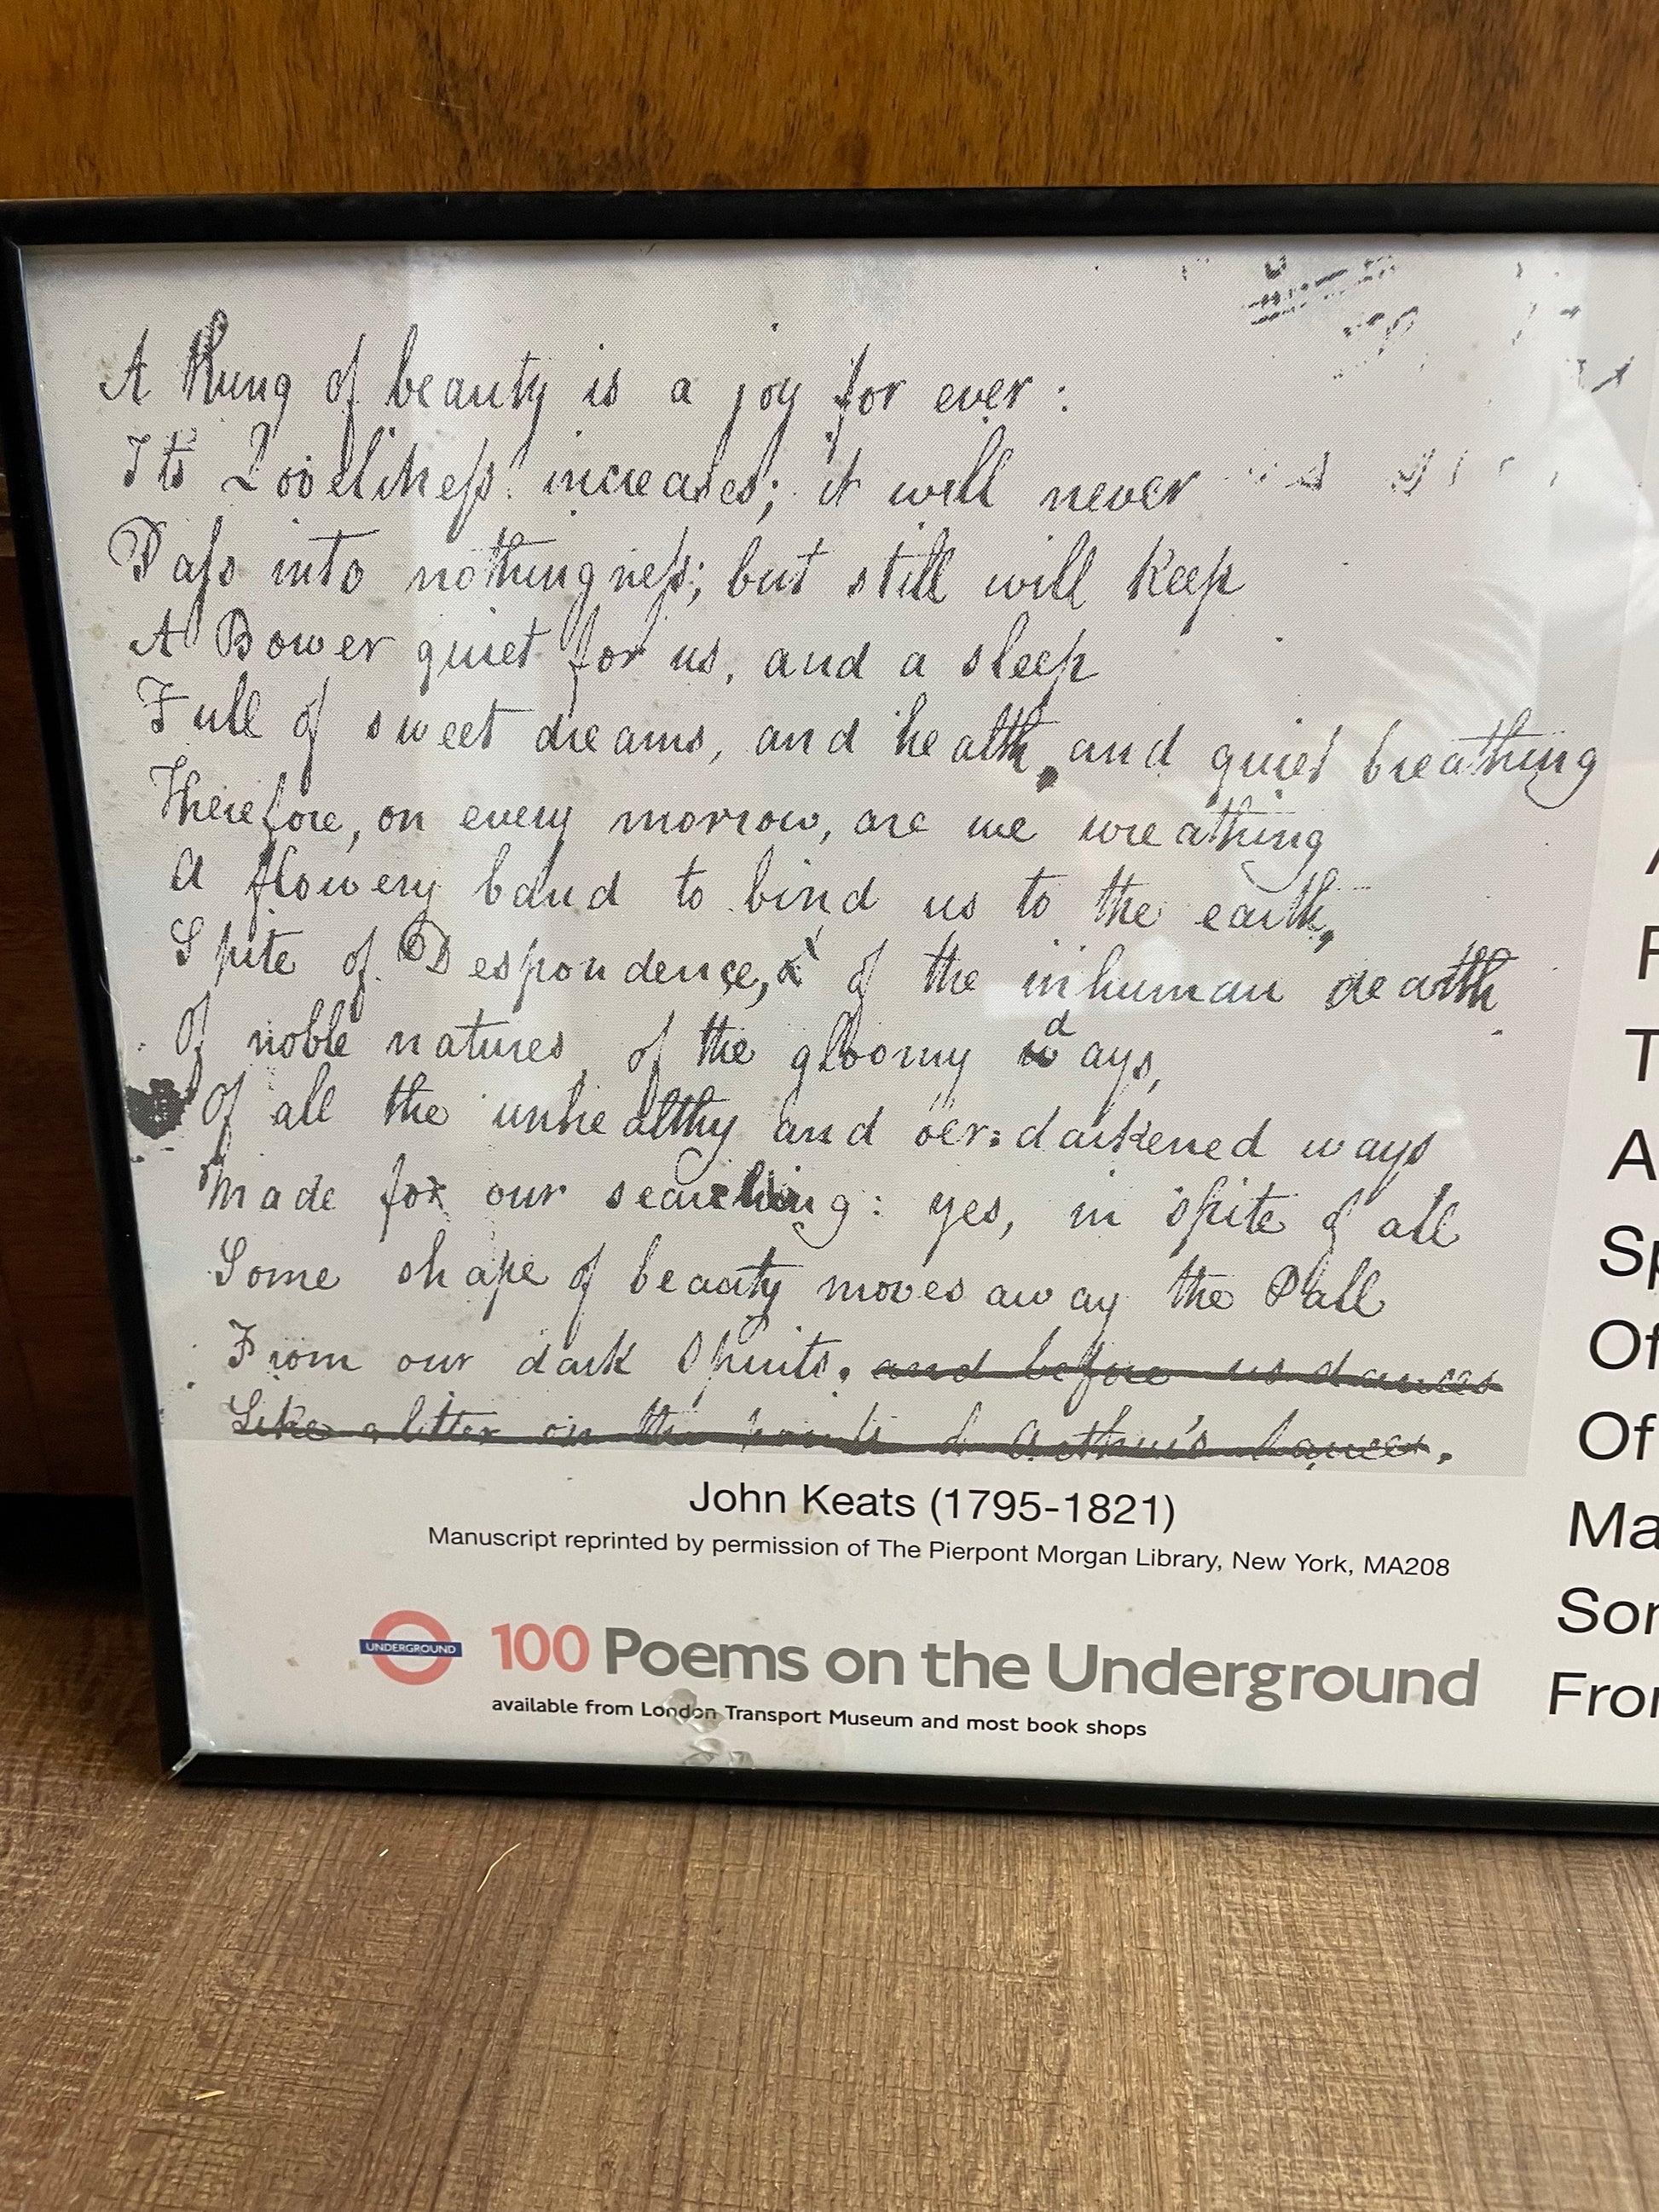 A thing of beauty is a joy for ever:
Its Loveliness increases; it will never
Pass into nothingness; but still will keep
A Bower quiet for us, and a sleep
Full of sweet dreams, and health, and quiet breathing
Therefore, on every morrow, are we wreathing
A flowery band to bind us to the earth,
Spite of Despondence, of the inhuman dearth
Of noble natures, of the gloomy days,
Of all the unhealthy and o'er-darkened ways
Made for our searching: yes, in spite of all
Some shape of beauty moves away the Pall
From our dark Spirits. and before us dances
Like glitter on the points of Arthur's Lances.
John Keats (1795-1821)
Manuscript reprinted by permission of The Pierpont Morgan Library, New York, MA208
UNDERGROUND
100 Poems on the Underground
available from London Transport Museum and most book shops
A
F
T
A
Sp
Of
Of
Ma
Som
From